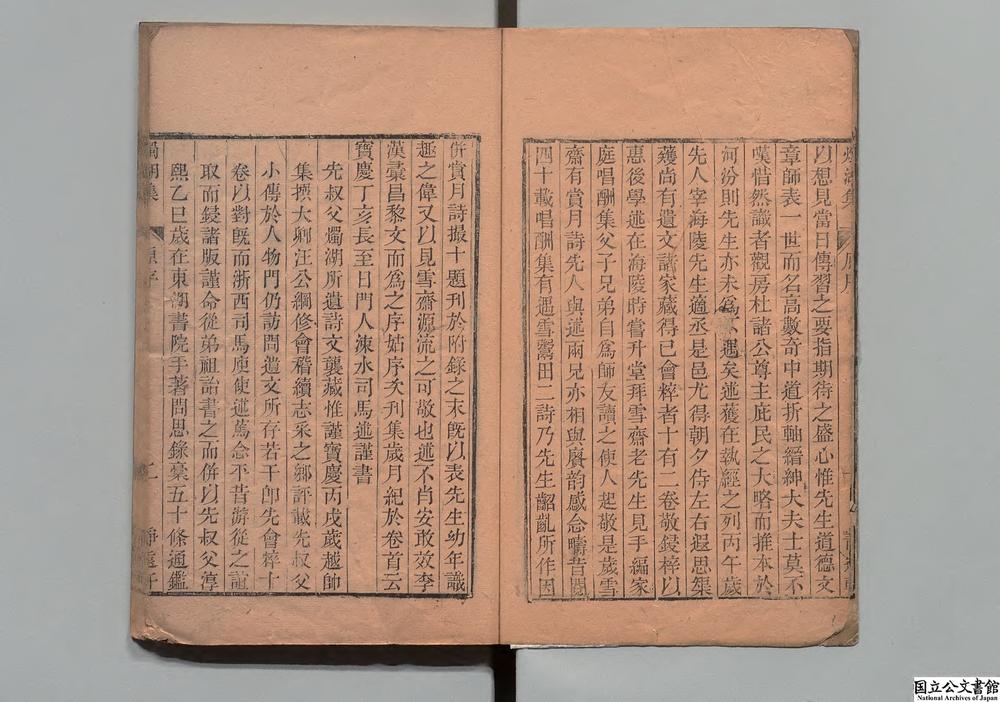 燭湖集 原序
以想見當日傳習之要指期待之盛心惟先生道德文
章師表一世而名高數奇中道折軸縉紳大夫士莫不
嘆惜然識者觀房杜諸公尊主庇民之大略而推本於
河汾則先生亦未為不遇矣述獲在執經之列丙午歲
先人宰海陵先生適丞是邑尤得朝夕侍左右遐思榘
蒦尚有遺文諸家藏得已會粹者十有二卷敬鋟梓以
惠後學述在海陵時嘗升堂拜雪齋老先生見手編家
庭唱酬集父子兄弟自為師友讀之使人起敬是歲雪
齋有賞月詩先人與述兩兄亦相與賡韵感念疇昔閱
四十載唱酬集有遇雪鬻田二詩乃先生齠齔所作因
併賞月詩撮十題刊於附錄之末旣以表先生幼年識
趣之偉又以見雪齋源流之可敬也述不肖安敢效李
漢彙昌黎文而為之序姑序次刊集歲月紀於卷首云
寶慶丁亥長至日門人涑水司馬述謹書
先叔父燭湖所遺詩文襲藏惟謹寶慶丙戌歲越帥
集撰大卿汪公綱修會稽續志采之鄉評載先叔父
小傳於人物門仍訪問遺文所存若干卽先會粹十
卷以對旣而浙西司馬庾使述篤念平昔游從之誼
取而鋟諸版謹命從弟祖詒書之而併以先叔父淳
熙乙巳歲在東湖書院手著問思錄稾五十條通鑑
燭湖集 原序 二 靜遠軒
国立公文書館
National Archives of Japan